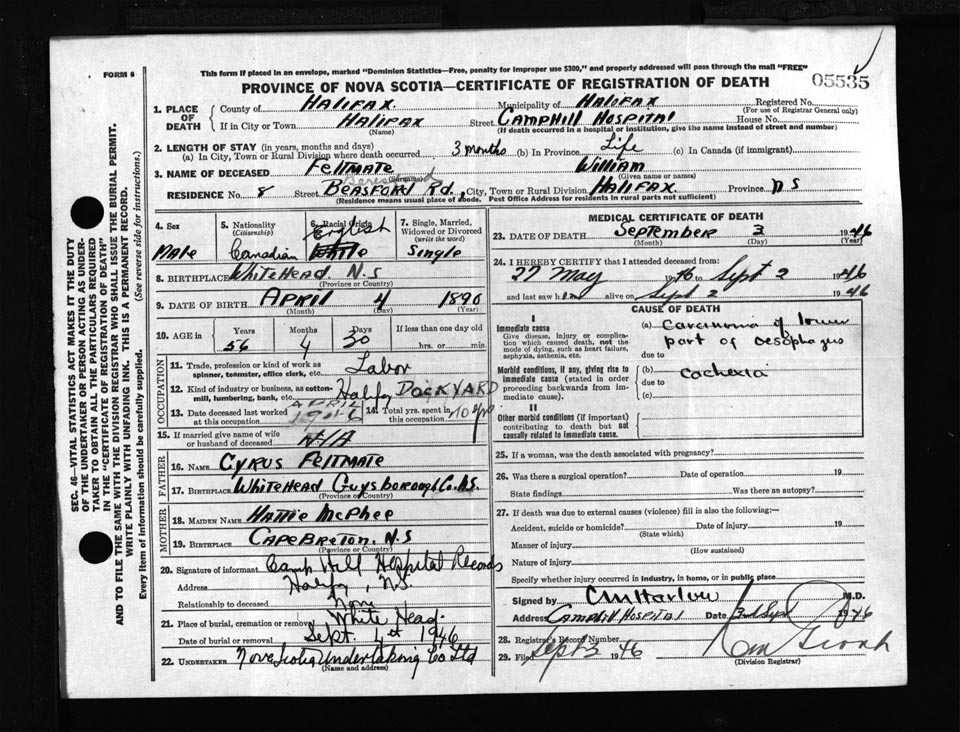 FORM 6
This form if placed in an envelope, marked "Dominion Statistics—Free, penalty for improper use $300," and properly addressed will pass through the mail "FREE"
PROVINCE OF NOVA SCOTIA—CERTIFICATE OF REGISTRATION OF DEATH
05535
1. PLACE OF DEATH { County of HALIFAX. Municipality of HALIFAX Registered No.
(For use of Registrar General only)
If in City or Town HALIFAX Street CAMPHILL HOSPITAL House No.
(Name) (If death occurred in a hospital or institution, give the name instead of street and number)
2. LENGTH OF STAY (in years, months and days)
(a) In City, Town or Rural Division where death occurred 3 months (b) In Province Life (c) In Canada (if immigrant)
3. NAME OF DECEASED FELTMATE WILLIAM
(Surname) (Given name or names)
RESIDENCE No. 8 Street BEASFORD Rd., City, Town or Rural Division HALIFAX. Province N S
(Residence means usual place of abode. Post Office Address for residents in rural parts not sufficient)
SEC. 46—VITAL STATISTICS ACT MAKES IT THE DUTY
OF THE UNDERTAKER OR PERSON ACTING AS UNDER-
TAKER TO OBTAIN ALL THE PARTICULARS REQUIRED
IN THE "CERTIFICATE OF REGISTRATION OF DEATH"
AND TO FILE THE SAME WITH THE DIVISION REGISTRAR WHO SHALL ISSUE THE BURIAL PERMIT.
WRITE PLAINLY WITH UNFADING INK. THIS IS A PERMANENT RECORD.
Every item of information should be carefully supplied. (See reverse side for instructions.)
4. Sex
Male
5. Nationality
(Citizenship)
Canadian
6. Racial Origin
English
White
7. Single, Married,
Widowed or Divorced
(write the word)
Single
8. BIRTHPLACE WHITEHEAD N.S
(Province or Country)
9. DATE OF BIRTH APRIL 4 1890
(Month) (Day) (Year)
10. AGE in { Years Months Days If less than one day old
56 4 30 hrs. or min.
OCCUPATION
11. Trade, profession or kind of work as
spinner, teamster, office clerk, etc. Labor
12. Kind of industry or business, as cotton-
mill, lumbering, bank, etc. Halifax DOCKYARD
13. Date deceased last worked
at this occupation APRIL 1946
14. Total yrs. spent in
this occupation 10 yrs
15. If married give name of wife
or husband of deceased N/A
FATHER
16. NAME CYRUS FELTMATE
17. BIRTHPLACE WHITEHEAD GUYSBOROUGH Co. N.S.
(Province or Country)
MOTHER
18. MAIDEN NAME HATTIE McPHEE
19. BIRTHPLACE CAPE BRETON. N.S
(Province or Country)
20. Signature of informant Camp Hill Hospital Records
Address Halifax, N.S.
Relationship to deceased None
21. Place of burial, cremation or removal White Head.
Date of burial or removal Sept. 4th 1946
22. UNDERTAKER Nova Scotia Undertaking Co Ltd
(Name and address)
MEDICAL CERTIFICATE OF DEATH
23. DATE OF DEATH SEPTEMBER 3 1946
(Month) (Day) (Year)
24. I HEREBY CERTIFY that I attended deceased from:
27 May 1946 to Sept 2 1946
and last saw him alive on Sept 2 1946
CAUSE OF DEATH
I
Immediate cause
Give disease, injury or complica-
tion which caused death, not the
mode of dying, such as heart failure,
asphyxia, asthenia, etc.
(a) Carcinoma of lower
part of oesophagus
due to
Morbid conditions, if any, giving rise to
immediate cause (stated in order
proceeding backwards from im-
mediate cause).
(b) Cachexia
due to
(c)
II
Other morbid conditions (if important)
contributing to death but not
causally related to immediate cause.
25. If a woman, was the death associated with pregnancy?
26. Was there a surgical operation? Date of operation 19
State findings Was there an autopsy?
27. If death was due to external causes (violence) fill in also the following:—
Accident, suicide or homicide? Date of injury 19
(State which)
Manner of injury
(How sustained)
Nature of injury
Specify whether injury occurred in industry, in home, or in public place
Signed by C M Harlow M.D.
Address CAMPHILL HOSPITAL Date 3rd Sept 1946
28. Registrar's Record Number
29. Filed Sept 3 1946
(Division Registrar)